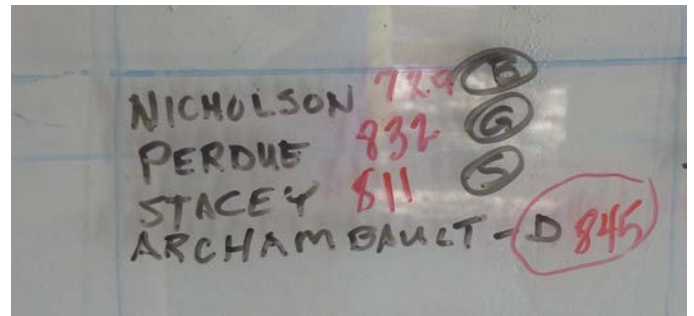 NICHOLSON 729 B
PERDUE 832 G
STACEY 811 S
ARCHAMBAULT - D 845